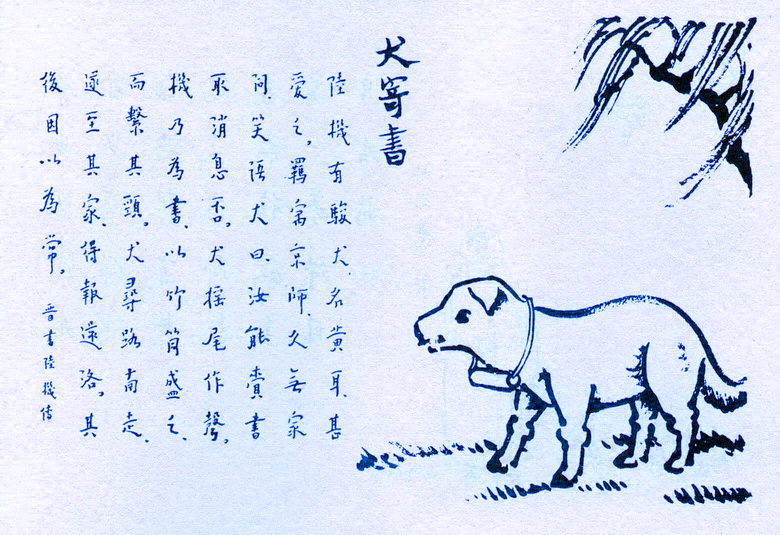 犬寄書
陸機有駿犬，名黄耳，甚
愛之。羈寓京師，久無家
問，笑語犬曰，汝能賫書
取消息否。犬摇尾作聲。
機乃為書，以竹筒盛之，
而繫其頸。犬尋路南走，
遂至其家，得報還洛。其
後因以為常。
晋書陸機傳